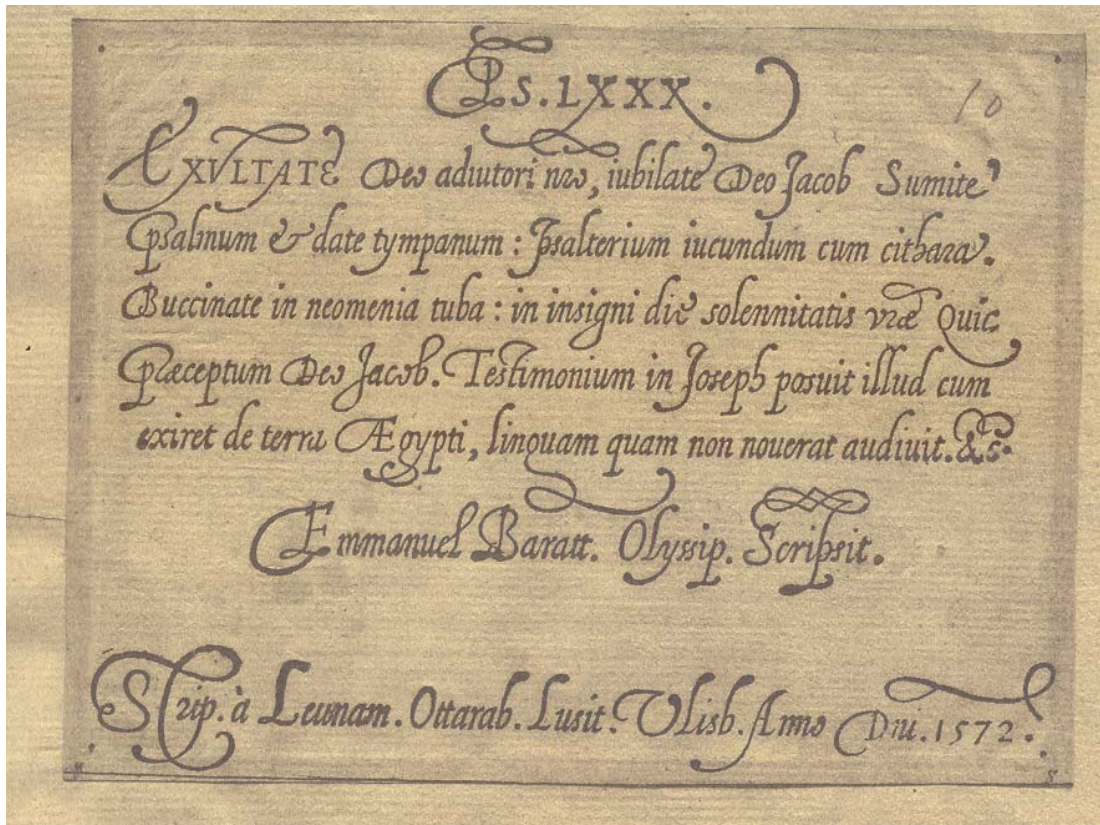 Ps. LXXX.
10
EXVLTATE Deo adiutori nro, iubilate Deo Jacob Sumite
psalmum & date tympanum : Psalterium iucundum cum cithara.
Buccinate in neomenia tuba : in insigni die solennitatis vræ Quia
præceptum Deo Jacob. Testimonium in Joseph posuit illud cum
exiret de terra Ægypti, linguam quam non nouerat audiuit. &c.
Emmanuel Baratt. Olyssip. Scripsit.
Scrip. à Leunam. Ottarab. Lusit. Vlisb. Anno Dni. 1572.